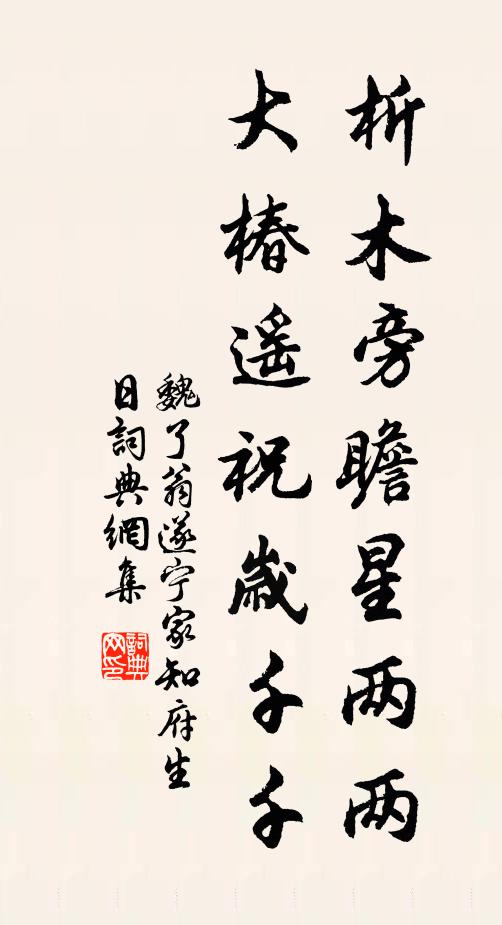 析木旁瞻星两两
大椿遥祝歳千千
魏了翁遂宁家知府生
日詞典網集
詞典网印